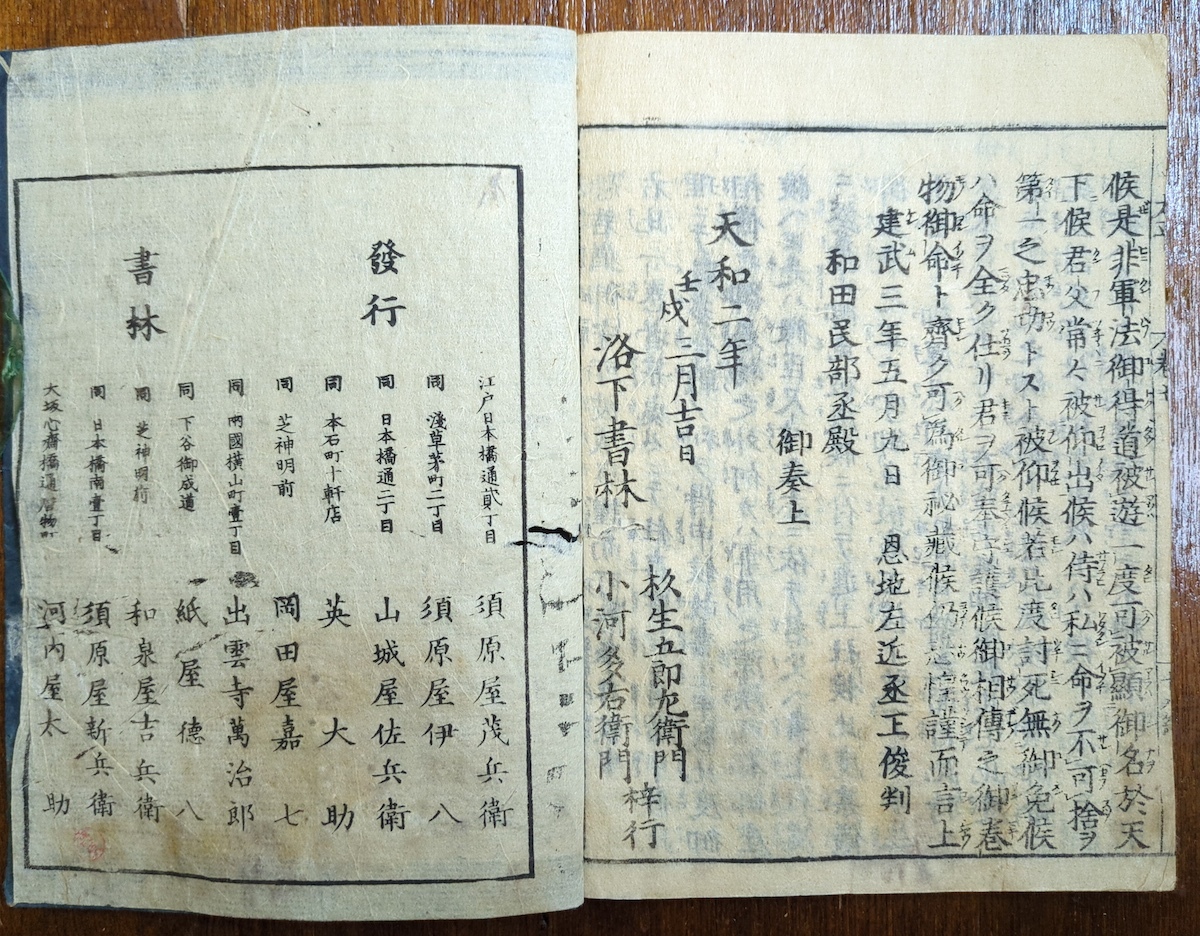 候是非軍法御得道被遊一度可被顯御名於天
下候君父常々被仰出候ハ侍ハ私ニ命ヲ不可捨ヲ
第一之忠功トスト被仰候若此度討死無御免候
ハ命ヲ全ク仕リ君ヲ可奉守護候御相傳之御巻
物御命ト齊ク可為御祕藏候 恐惶謹而言上
建武三年五月九日 恩地左近丞正俊判
和田民部丞殿
御奏上
天和二年
壬戌三月吉日
杦生五郎左衛門
洛下書林 小河多左衛門 梓行
發行
書林
江戸日本橋通貳丁目 須原屋茂兵衛
同 淺草茅町二丁目 須原屋伊八
同 日本橋通二丁目 山城屋佐兵衛
同 本石町十軒店 英大助
同 芝神明前 岡田屋嘉七
同 兩國橫山町壹丁目 出雲寺萬治郎
同 下谷御成道 紙屋德八
同 芝神明前 和泉屋吉兵衛
同 日本橋南壹丁目 須原屋新兵衛
大坂心齋橋通唐物町 河内屋太助